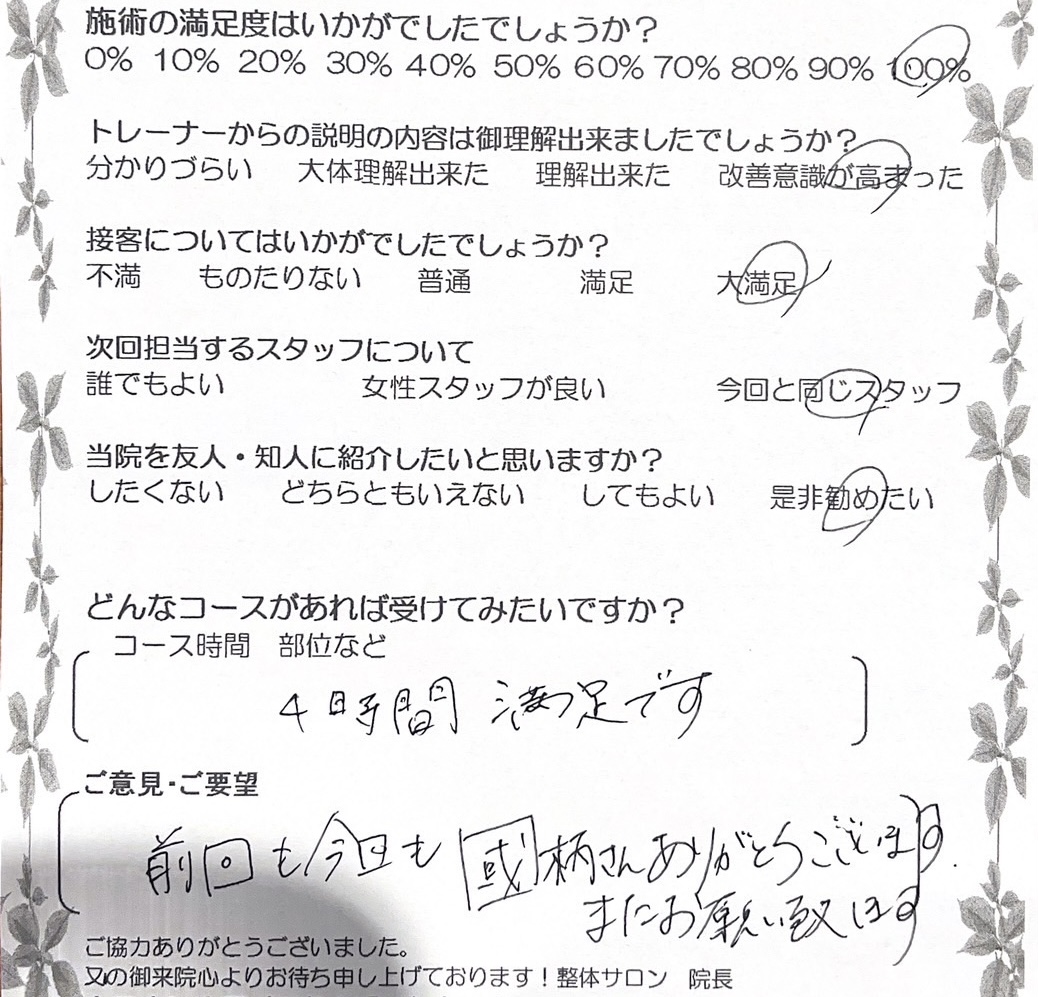 施術の満足度はいかがでしたでしょうか？
0% 10% 20% 30% 40% 50% 60% 70% 80% 90% 100%
トレーナーからの説明の内容は御理解出来ましたでしょうか？
分かりづらい 大体理解出来た 理解出来た 改善意識が高まった
接客についてはいかがでしたでしょうか？
不満 ものたりない 普通 満足 大満足
次回担当するスタッフについて
誰でもよい 女性スタッフが良い 今回と同じスタッフ
当院を友人・知人に紹介したいと思いますか？
したくない どちらともいえない してもよい 是非勧めたい
どんなコースがあれば受けてみたいですか？
コース時間 部位など
4時間 満足です
ご意見・ご要望
前回も今回も國柄さんありがとうございます.
またお願い致します
ご協力ありがとうございました。
又の御来院心よりお待ち申し上げております！整体サロン 院長